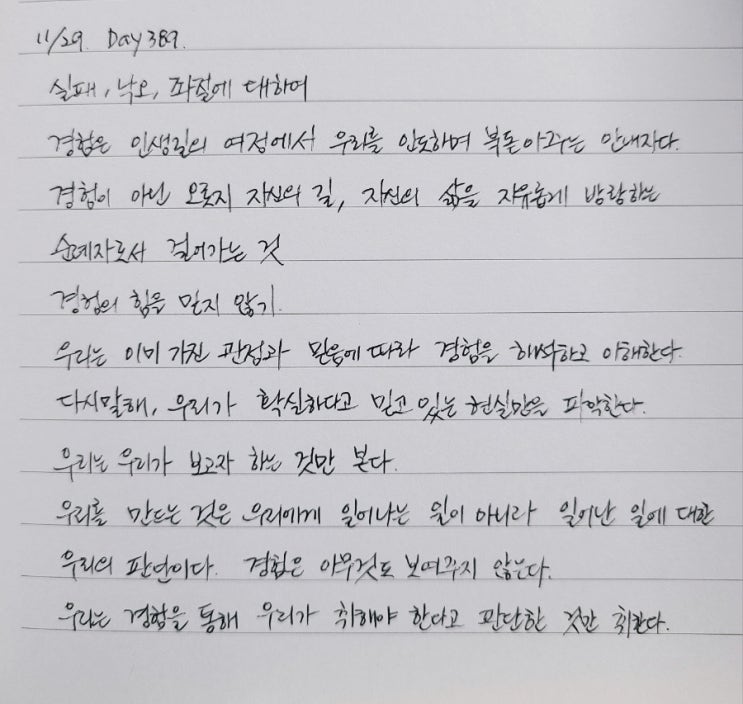 11/29. Day 389.
실패, 낙오, 좌절에 대하여
경험은 인생길의 여정에서 우리를 인도하며 북돋아주는 안내자다.
경험이 아닌 오롯지 자신의 길, 자신의 삶을 자유롭게 방랑하는
순례자로서 걸어가는 것
경험의 힘을 믿지 않기.
우리는 이미 가진 관점과 믿음에 따라 경험을 해석하고 이해한다.
다시말해, 우리가 확실하다고 믿고 있는 현실만을 파악한다.
우리는 우리가 보고자 하는 것만 본다.
우리를 만드는 것은 우리에게 일어나는 일이 아니라 일어난 일에 대한
우리의 판단이다. 경험은 아무것도 보여주지 않는다.
우리는 경험을 통해 우리가 취해야 한다고 판단한 것만 취한다.